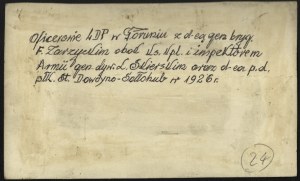 Oficerowie 4DP w Toruniu z d-cą gen. bryg.
F. Zarzyckim obok ks. kpl. i inspektorem
Armii gen. dyw. L. Skierskim oraz d-ca p.d.
płk St. Dowoyno-Sołłohub w 1926 r.
24